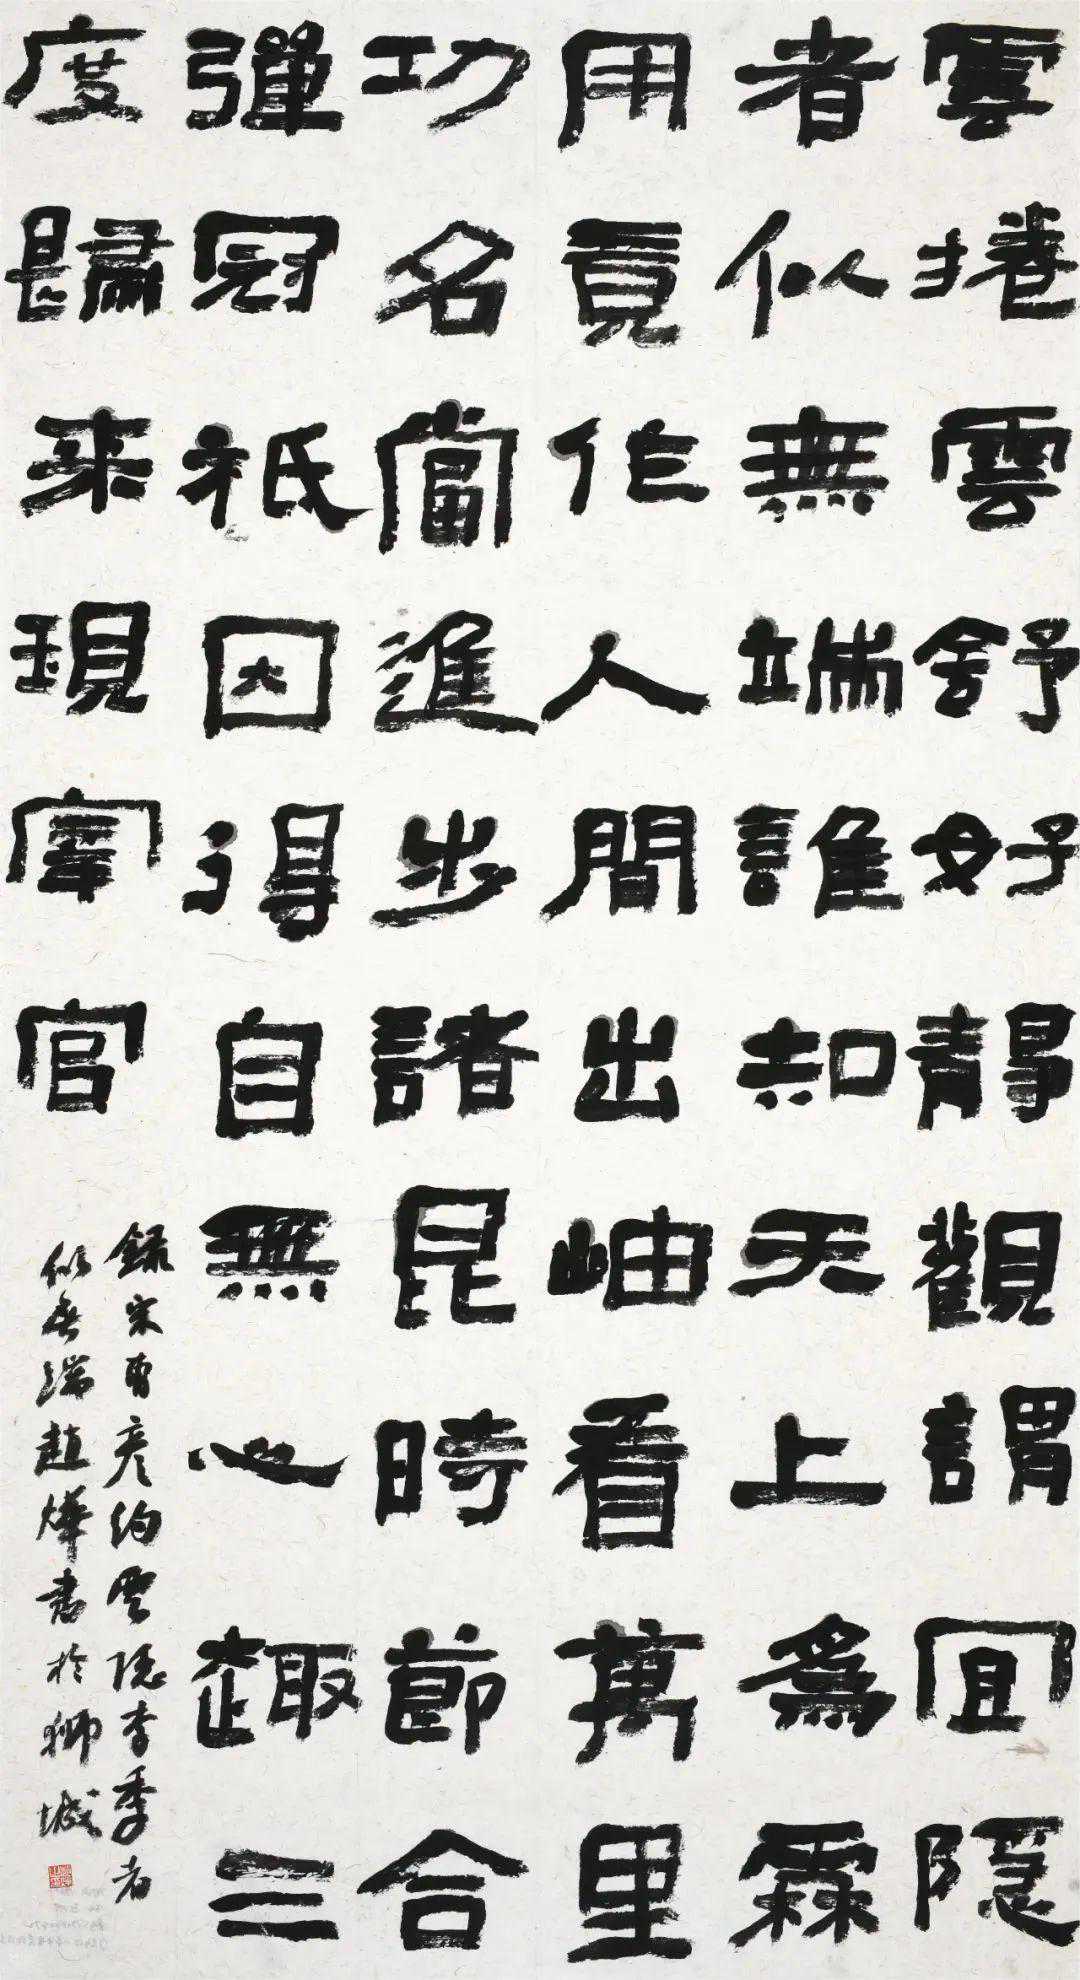 雲捲雲舒好靜觀謂宜隱
者似無端誰知天上爲霖
用竟作人間出岫看萬里
功名當進步諸昆時節合
彈冠祇因得自無心趣三
度歸来現宰官
錄宋曹彦約雲隱李季者
似無端趙燁書於獅城